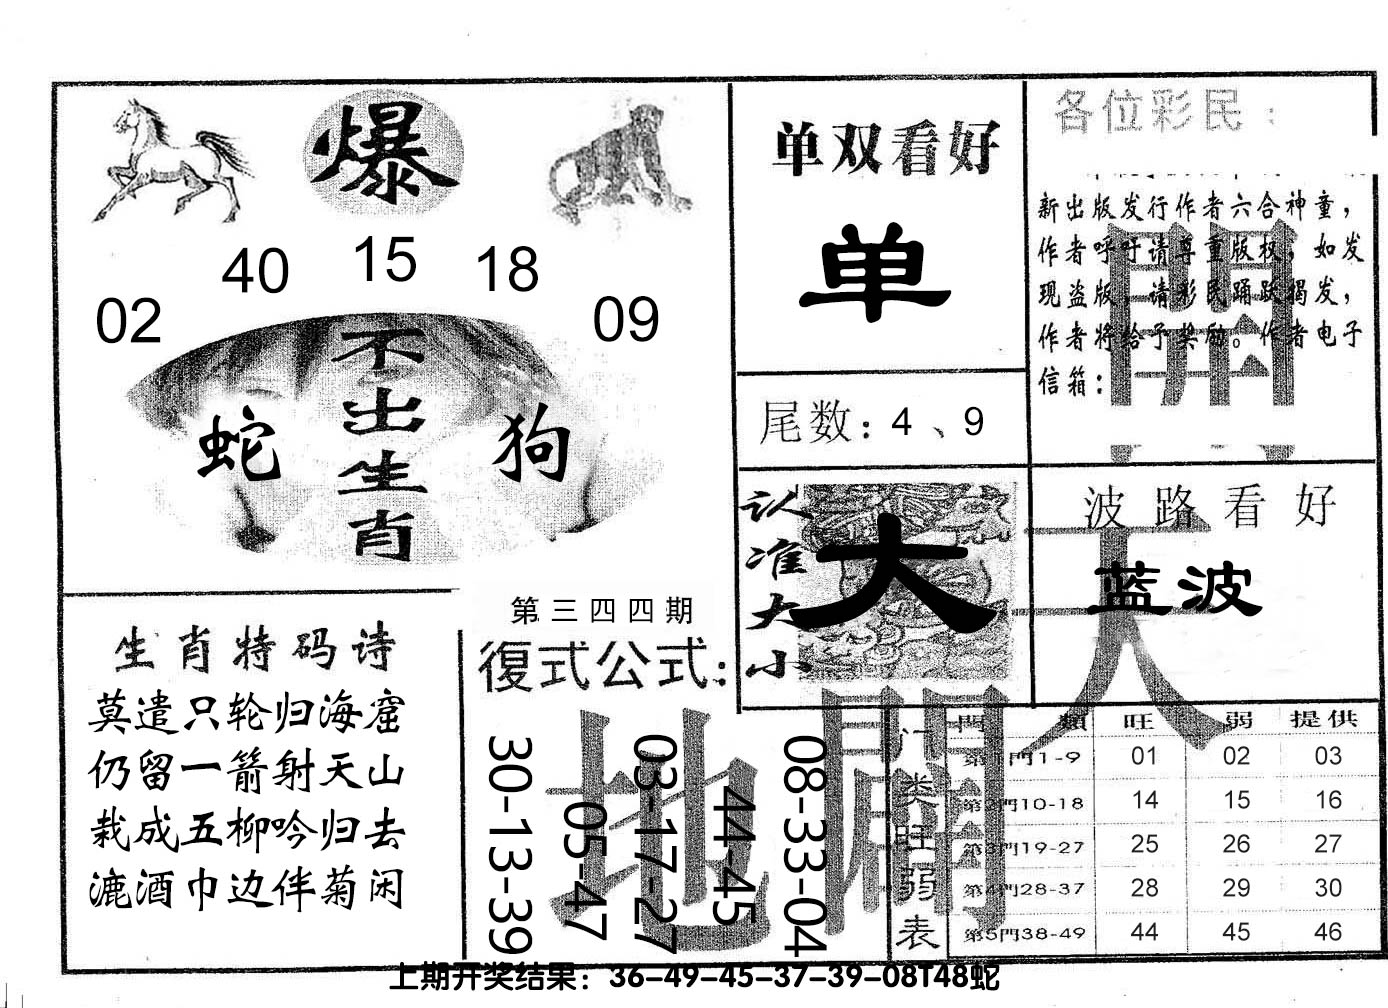 爆
02 40 15 18 09
不出生肖
蛇 狗
单双看好
单
尾数：4、9
各位彩民：
新出版发行作者六合神童，
作者呼吁请尊重版权，如发
现盗版，请彩民踊跃揭发，
作者将给予奖励。作者电子
信箱：
認准大小
大
波路看好
蓝波
天
地
生肖特码诗
莫遣只轮归海窟
仍留一箭射天山
栽成五柳吟归去
漉酒巾边伴菊闲
第三四四期
復式公式：
30-13-39
05-47
03-17-27
44-45
08-33-04
门类旺弱表
門類 旺 弱 提供
第1門1-9 01 02 03
第2門10-18 14 15 16
第3門19-27 25 26 27
第4門28-37 28 29 30
第5門38-49 44 45 46
上期开奖结果：36-49-45-37-39-08T48蛇